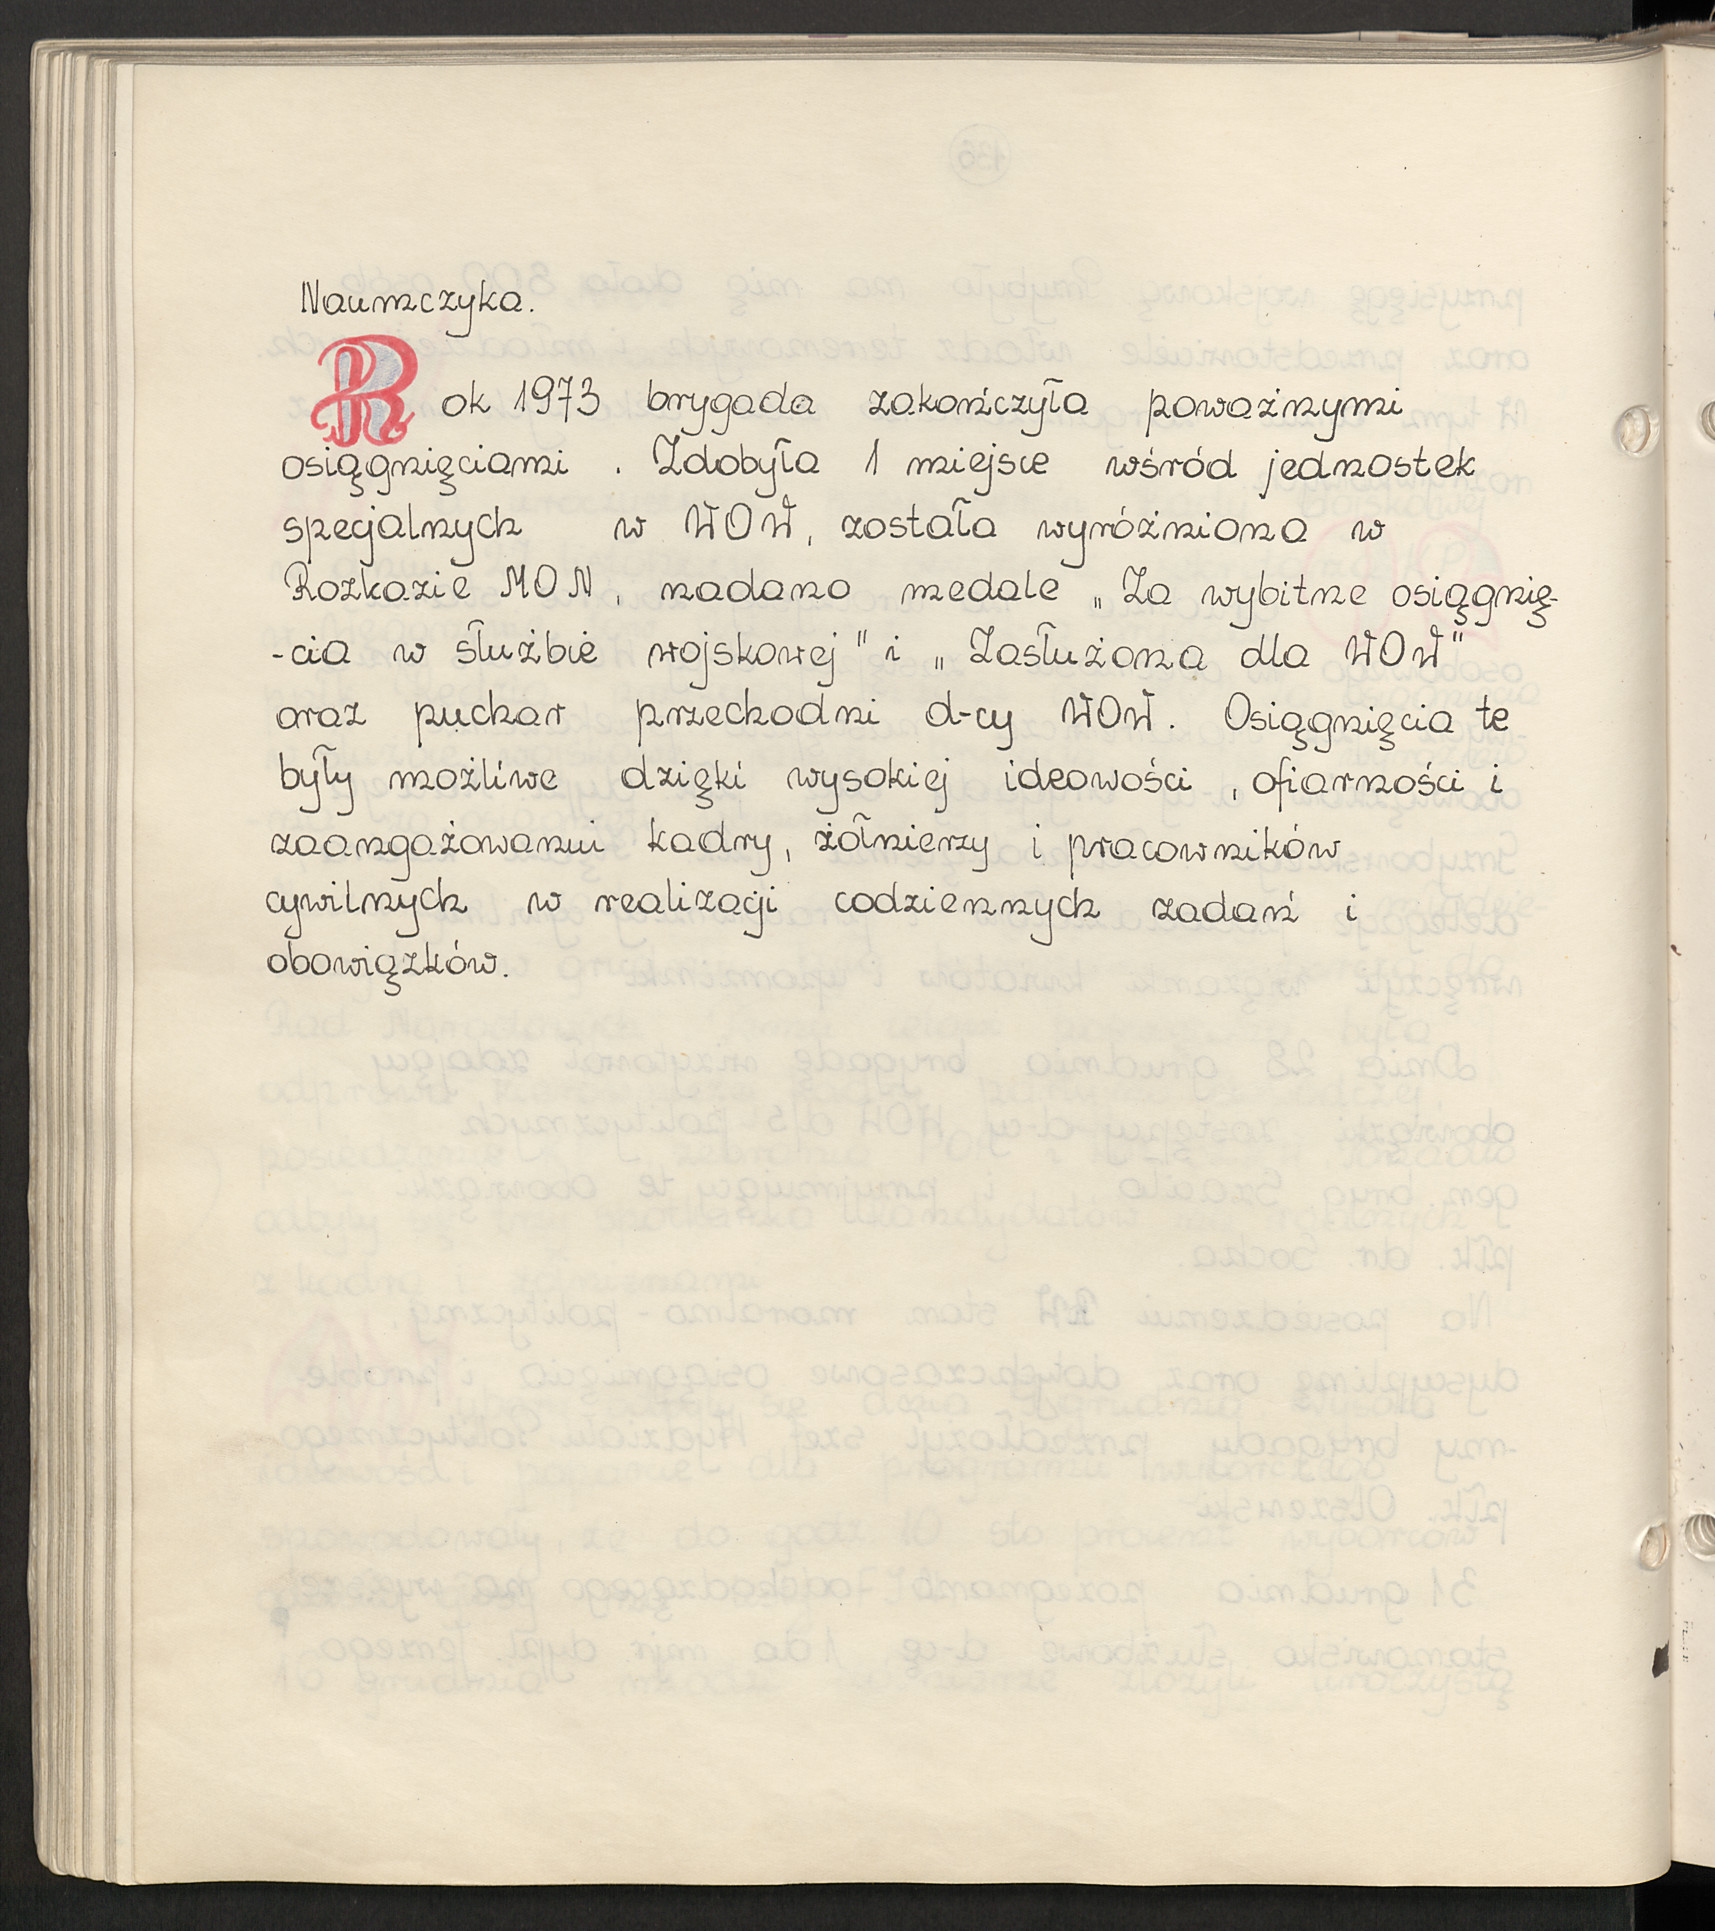 Naumczyka.
Rok 1973 brygada zakończyła poważnymi
osiągnięciami. Zdobyła 1 miejsce wśród jednostek
specjalnych w WOW, została wyróżniona w
Rozkazie MON, nadano medale „Za wybitne osiągnię-
-cia w służbie wojskowej" i „Zasłużona dla WOW"
oraz puchar przechodni d-cy WOW. Osiągnięcia te
były możliwe dzięki wysokiej ideowości, ofiarności i
zaangażowaniu kadry, żołnierzy i pracowników
cywilnych w realizacji codziennych zadań i
obowiązków.